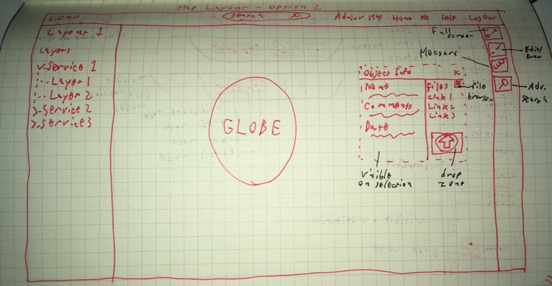 Map Layout - option 2
Logo
search
Map Home Help Logout
Layout 1
Layers
v Service 1
Layer 1
Layer 2
> Service 2
> Service 3
GLOBE
Full
screen
Measure
Search
Object Info x
Name
Comments
Date
Files
Link 1
Link 2
Link 3
file
browser
visible
on selection
drop
zone